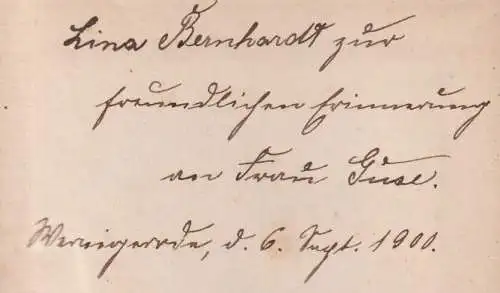 Lina Bernhardt zur
freundlichen Erinnerung
an Frau Guse.
Wernigerode, d. 6. Sept. 1900.